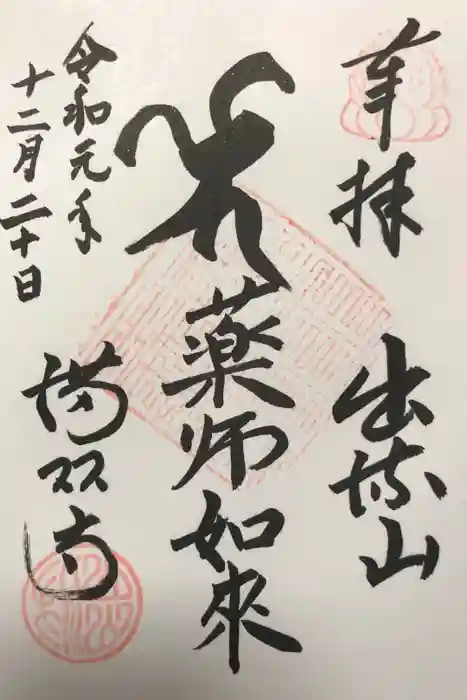 奉拝 出流山
薬師如來
令和元年
十二月二十日
満願寺